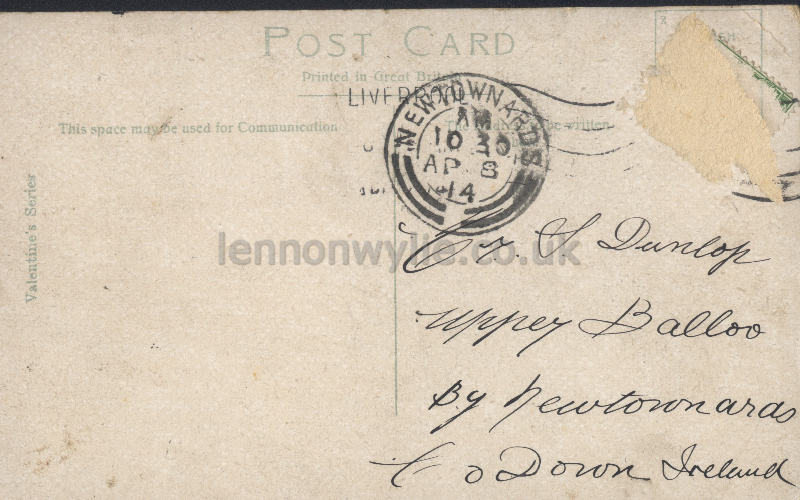 POST CARD
Printed in Great Britain
LIVERPOOL
This space may be used for Communication
be written
NEWTOWNARDS
AM
10 30
AP 8
14
Valentine's Series
lennonwylie.co.uk
S Dunlop
Upper Balloo
By Newtownards
Co Down Ireland